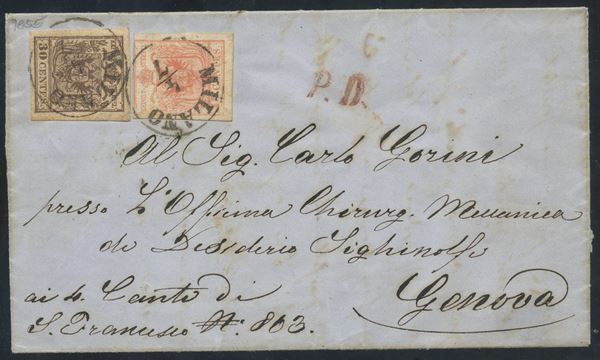 1855
30 CENTES
MILANO
MILANO
P.D.
Al Sig. Carlo Gorini
presso L'Officina Chirurg. Meccanica
di Desiderio Sighinolfi
Genova
ai 4. Canti di
S. Francesco N.° 803.